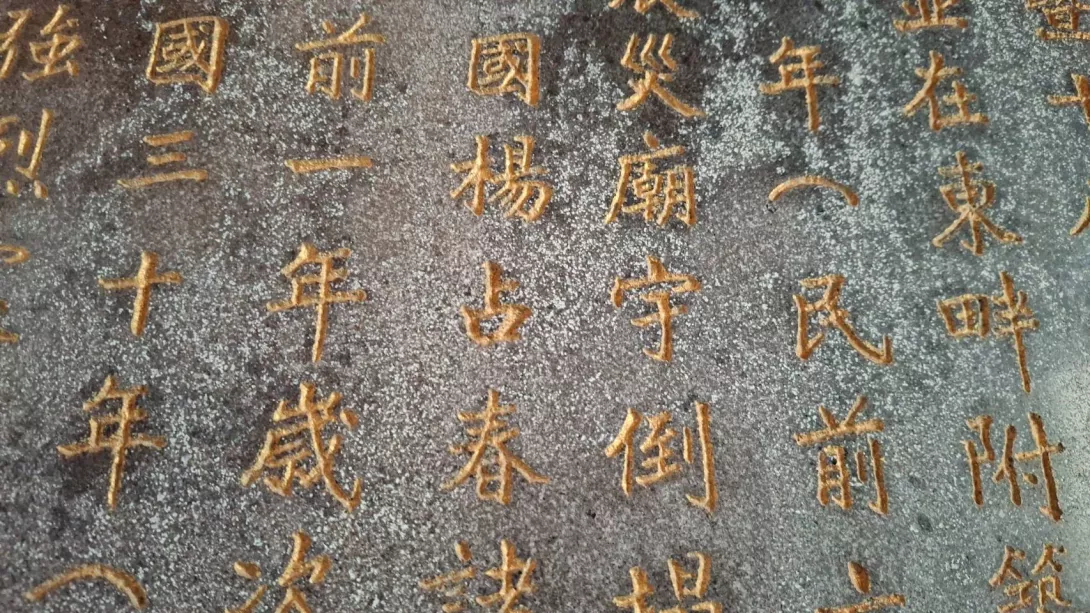 並在東畔附築
年（民前六
震災廟宇倒塌
國楊占春諸
前一年歲次
國三十年（
強烈